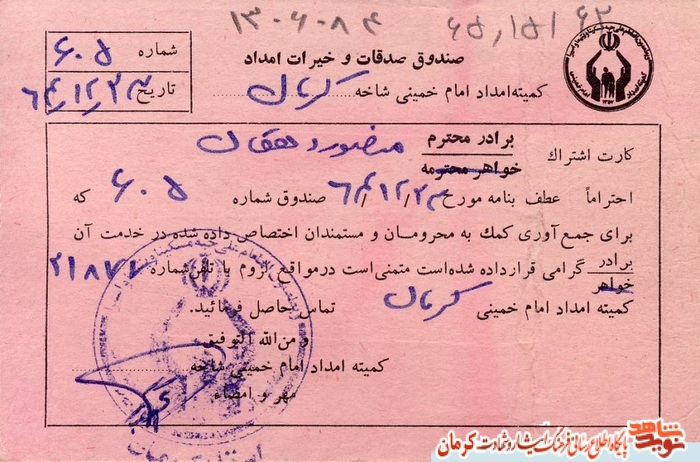 ۱۳۰۶۰۸۴ ۶۵,۱۵۱ ۶۲
صندوق صدقات و خیرات امداد
کمیته‌امداد امام خمینی شاخه کرمان
شماره ۶۰۵
تاریخ ۶۴,۱۲,۲۴
کارت اشتراك برادر محترم منصور دهقان
خواهر محترمه
احتراماً عطف بنامه مورخ ۶۴/۱۲/۲۴ صندوق شماره ۶۰۵ که
برای جمع‌آوری کمك به محرومان و مستمندان اختصاص داده شده در خدمت آن
برادر گرامی قرارداده شده‌است متمنی‌است درمواقع لزوم با تلفن‌شماره ۲۱۸۷۲
خواهر
کمیته امداد امام خمینی کرمان تماس حاصل فرمائید.
ومن‌الله التوفیق.
کمیته امداد امام خمینی شاخه
مهر و امضاء
نوید شاهد
پایگاه اطلاع رسانی فرهنگ ایثار و شهادت کرمان